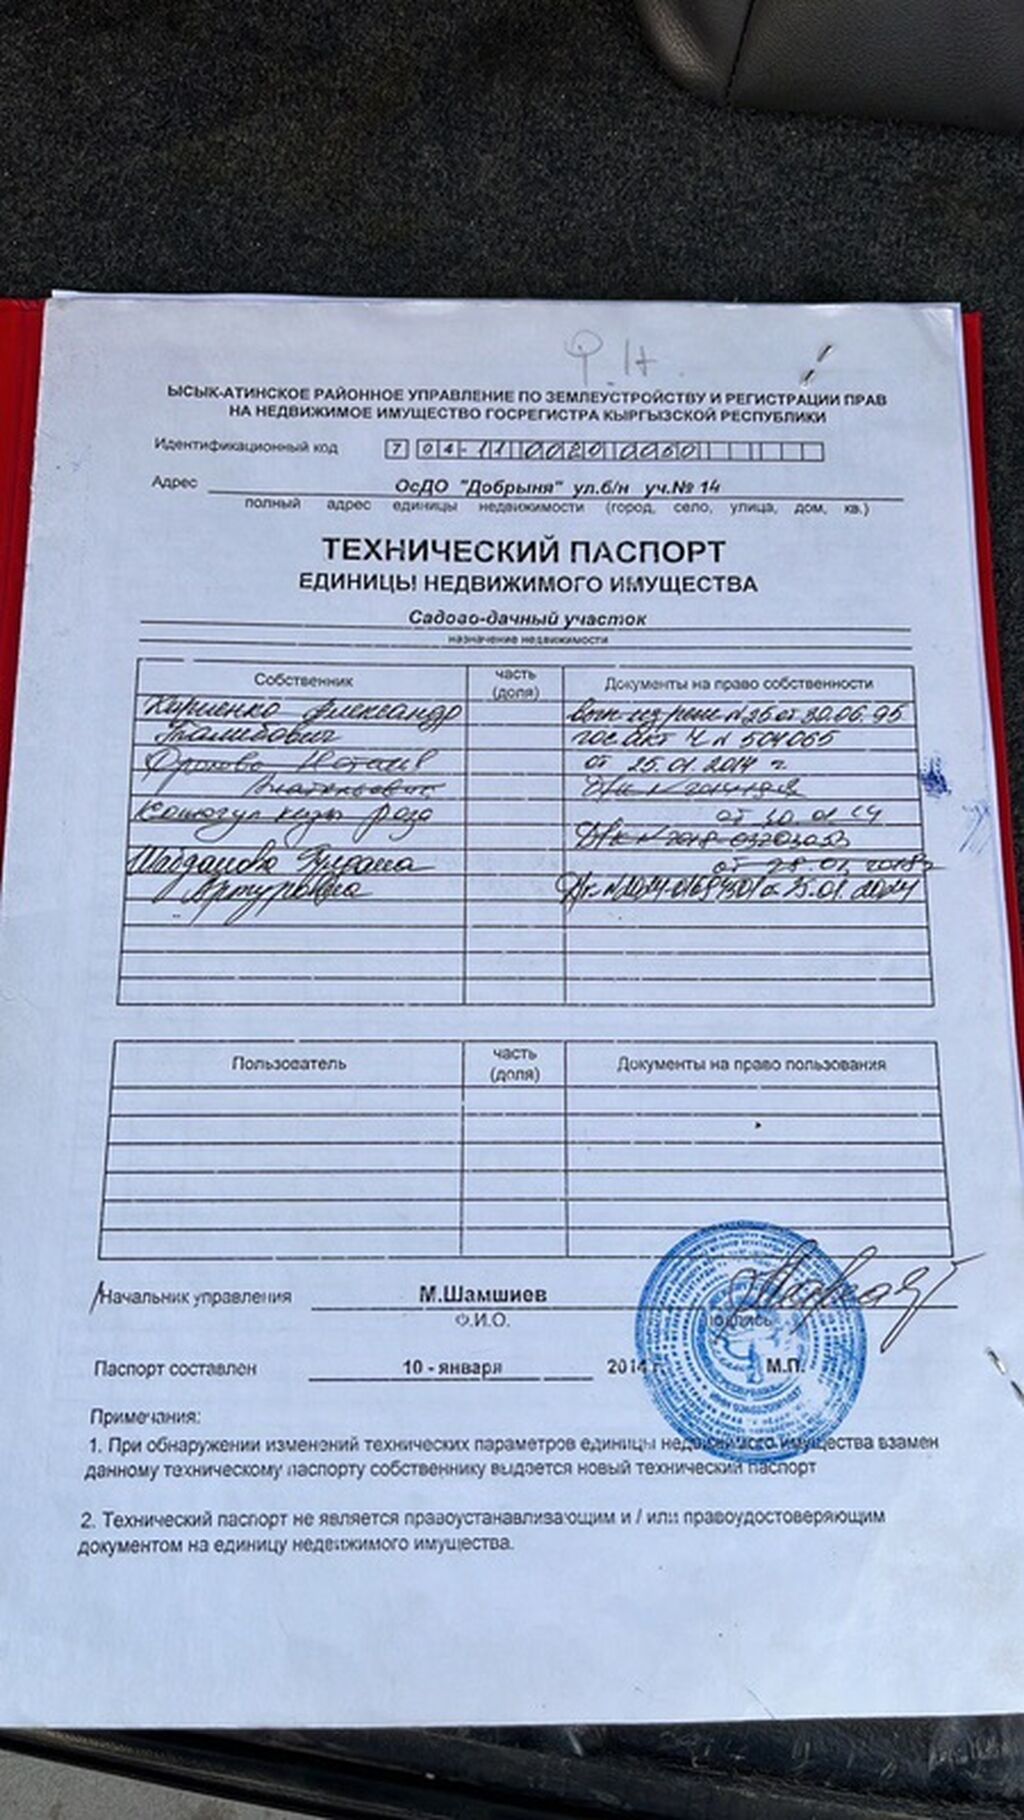 Ф. Н.
ЫСЫК-АТИНСКОЕ РАЙОННОЕ УПРАВЛЕНИЕ ПО ЗЕМЛЕУСТРОЙСТВУ И РЕГИСТРАЦИИ ПРАВ
НА НЕДВИЖИМОЕ ИМУЩЕСТВО ГОСРЕГИСТРА КЫРГЫЗСКОЙ РЕСПУБЛИКИ
Идентификационный код 7 04-11 0020 0060
Адрес ОсДО "Добрыня" ул.б/н уч.№ 14
полный адрес единицы недвижимости (город, село, улица, дом, кв.)
ТЕХНИЧЕСКИЙ ПАСПОРТ
ЕДИНИЦЫ НЕДВИЖИМОГО ИМУЩЕСТВА
Садово-дачный участок
назначение недвижимости
Собственник часть (доля) Документы на право собственности
Александр вып из реш N25 от 30.06.95
гос акт Ч N 504065
от 25.01.2014 г.
от 30.01.14
кызы Роза
от 28.01.2018г
Артуровна от 25.01.2024
Пользователь часть (доля) Документы на право пользования
Начальник управления М.Шамшиев
Ф.И.О. подпись
Паспорт составлен 10 - января 2014 г. М.П.
Примечания:
1. При обнаружении изменений технических параметров единицы недвижимого имущества взамен
данному техническому паспорту собственнику выдается новый технический паспорт
2. Технический паспорт не является правоустанавливающим и / или правоудостоверяющим
документом на единицу недвижимого имущества.